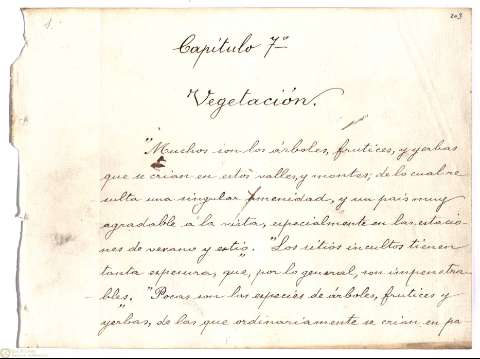 1.
203
Capítulo 7º
Vegetación.
"Muchos son los árboles, frutices, y yerbas
que se crian en estos valles, y montes; de lo cual re
sulta una singular amenidad, y un pais muy
agradable á la vista, especialmente en las estacio
nes de verano y estio". "Los sitios incultos tienen
tanta espesura, que, por lo general, son impenetra
bles". "Pocas son las especies de árboles, frutices y
yerbas, de las que ordinariamente se crian en pa